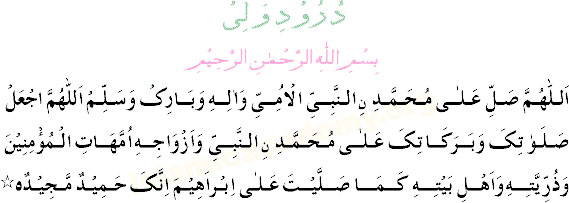 دُرُوْدِ وَلِیْ
بِسْمِ اللّٰهِ الرَّحْمٰنِ الرَّحِيْمِ
اَللّٰهُمَّ صَلِّ عَلٰى مُحَمَّدِ نِ النَّبِيِّ الْاُمِّيِّ وَاٰلِهٖ وَبَارِكْ وَسَلِّمْ اَللّٰهُمَّ اجْعَلْ
صَلَوٰتِكَ وَبَرَكَاتِكَ عَلٰى مُحَمَّدِ نِ النَّبِيِّ وَاَزْوَاجِهٖ اُمَّهَاتِ الْمُؤْمِنِيْنَ
وَذُرِّيَّتِهٖ وَاَهْلِ بَيْتِهٖ كَمَا صَلَّيْتَ عَلٰى اِبْرَاهِيْمَ اِنَّكَ حَمِيْدٌ مَّجِيْدٌ ه☆